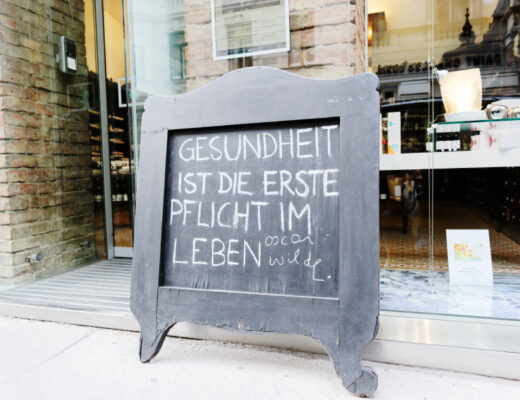 GESUNDHEIT
IST DIE ERSTE
PFLICHT IM
LEBEN oscar
wilde.